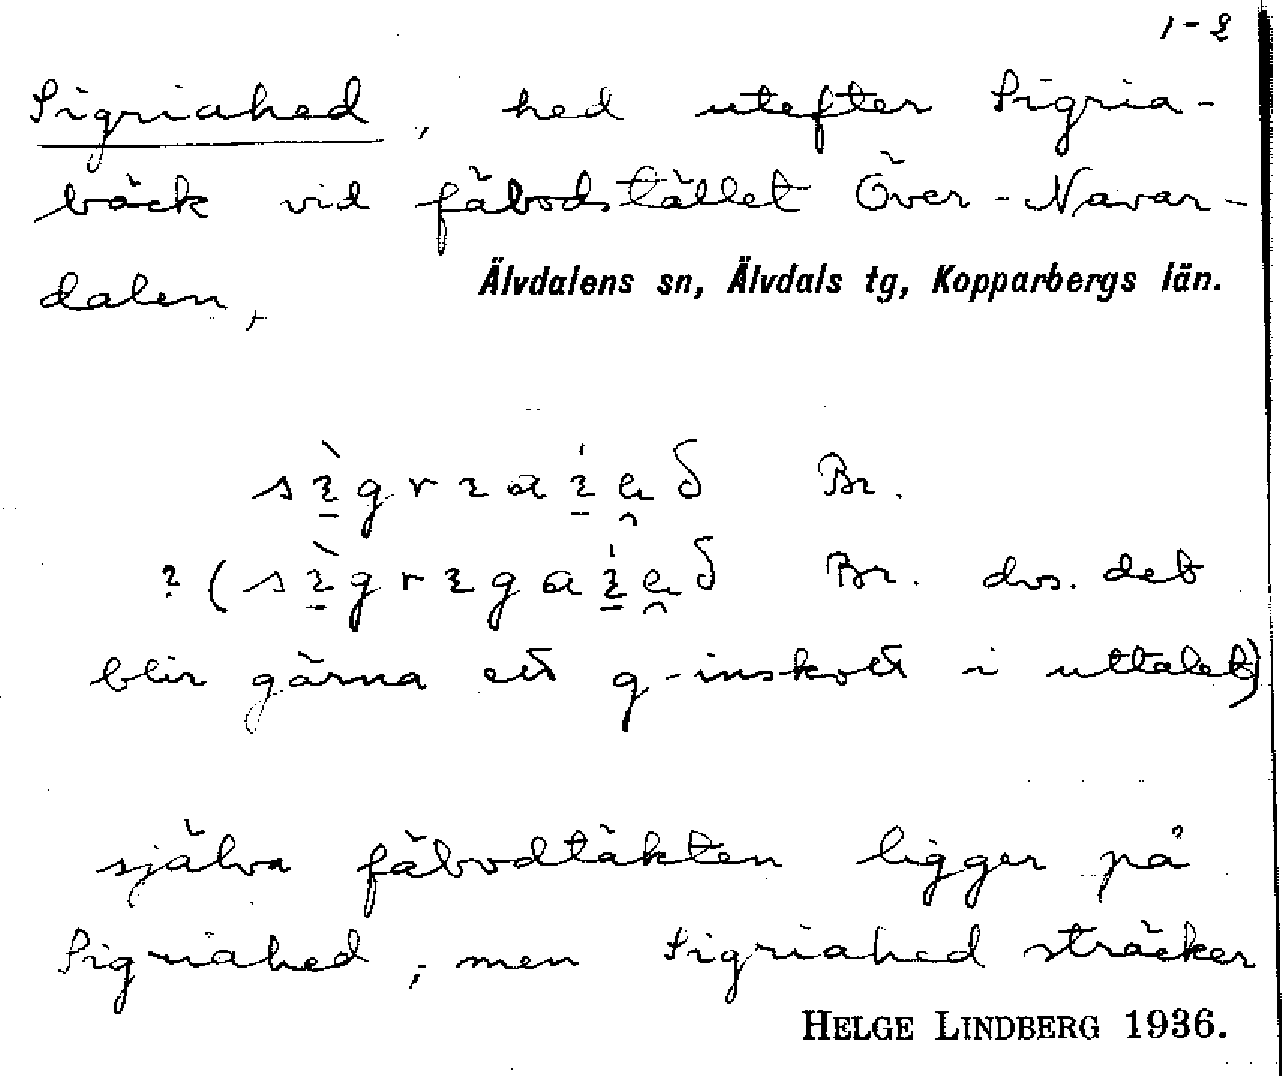 1-2
Sigriahed, hed utefter Sigria-
bäck vid fäbodstället Över-Navar-
dalen,
Älvdalens sn, Älvdals tg, Kopparbergs län.
sı̱̀grıaı̱́e̯d Br.
?(sı̱̀grıgaı̱́e̯d Br. dvs. det
blir gärna ett g-inskott i uttalet)
själva fäbodtäkten ligger på
Sigriahed, men Sigriahed sträcker
HELGE LINDBERG 1936.